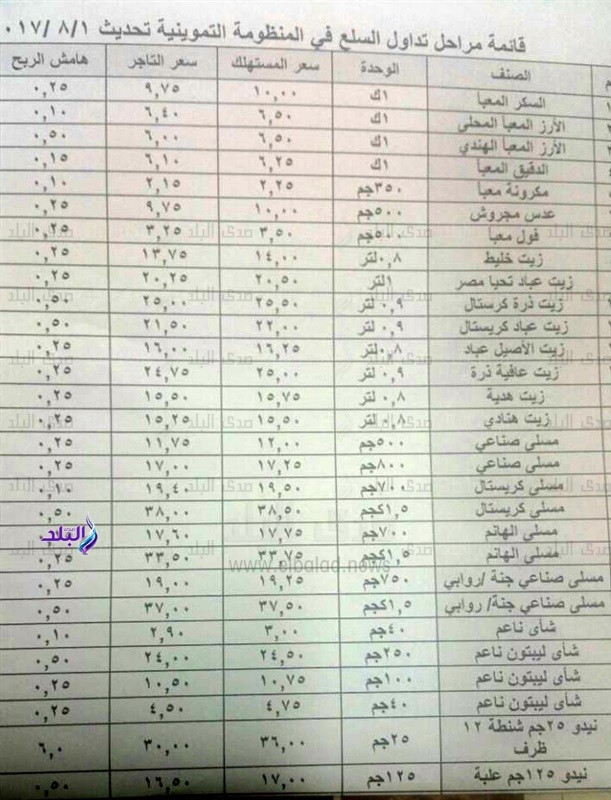 قائمة مراحل تداول السلع في المنظومة التموينية تحديث ٨/١ /٠١٧
م الصنف الوحدة سعر المستهلك سعر التاجر هامش الربح
السكر المعبأ ١ك ١٠,٠٠ ٩,٧٥ ٠,٢٥
الأرز المعبأ المحلى ١ك ٦,٥٠ ٦,٤٠ ٠,١٠
الأرز المعبأ الهندي ١ك ٦,٥٠ ٦,٠٠ ٠,٥٠
الدقيق المعبأ ١ك ٦,٢٥ ٦,١٠ ٠,١٥
مكرونة معبأ ٣٥٠جم ٢,٢٥ ٢,١٥ ٠,١٠
عدس مجروش ٥٠٠جم ١٠,٠٠ ٩,٧٥ ٠,٢٥
فول معبأ ٥٠٠جم ٣,٥٠ ٣,٢٥ ٠,٢٥
زيت خليط ٠,٨لتر ١٤,٠٠ ١٣,٧٥ ٠,٢٥
زيت عباد تحيا مصر ١لتر ٢٠,٥٠ ٢٠,٢٥ ٠,٢٥
زيت ذرة كرستال ٠,٩ لتر ٢٥,٥٠ ٢٥,٠٠ ٠,٥٠
زيت عباد كريستال ٠,٩ لتر ٢٢,٠٠ ٢١,٥٠ ٠,٥٠
زيت الأصيل عباد ٠,٨ لتر ١٦,٢٥ ١٦,٠٠ ٠,٢٥
زيت عافية ذرة ٠,٩ لتر ٢٥,٠٠ ٢٤,٧٥ ٠,٢٥
زيت هدية ٠,٨ لتر ١٥,٧٥ ١٥,٥٠ ٠,٢٥
زيت هنادي ٠,٨ لتر ١٥,٥٠ ١٥,٢٥ ٠,٢٥
مسلى صناعي ٥٠٠جم ١٢,٠٠ ١١,٧٥ ٠,٢٥
مسلى صناعي ٨٠٠جم ١٧,٢٥ ١٧,٠٠ ٠,٢٥
مسلى كريستال ٧٠٠جم ١٩,٥٠ ١٩,٤٠ ٠,١٠
مسلى كريستال ١,٥كجم ٣٨,٥٠ ٣٨,٠٠ ٠,٥٠
مسلى الهانم ٧٠٠جم ١٧,٧٥ ١٧,٦٠
مسلى الهانم ١,٥كجم ٣٣,٧٥ ٣٣,٥٠ ٠,٢٥
مسلى صناعي جنة /روابي ٧٥٠جم ١٩,٢٥ ١٩,٠٠ ٠,٢٥
مسلى صناعي جنة/ روابي ١,٥كجم ٣٧,٥٠ ٣٧,٠٠ ٠,٥٠
شأى ناعم ٤٠جم ٣,٠٠ ٢,٩٠ ٠,١٠
شأى ليبتون ناعم ٢٥٠جم ٢٤,٥٠ ٢٤,٠٠ ٠,٥٠
شأى ليبتون ناعم ١٠٠جم ١٠,٧٥ ١٠,٥٠ ٠,٢٥
شأى ليبتون ناعم ٤٠جم ٤,٧٥ ٤,٥٠ ٠,٢٥
نيدو ٢٥جم شنطة ١٢ ظرف ٢٥جم ٣٦,٠٠ ٣٠,٠٠ ٦,٠
نيدو ١٢٥جم علبة ١٢٥جم ١٧,٠٠ ١٦,٥٠ ٠,٥٠
صدى البلد
www.elbalad.news